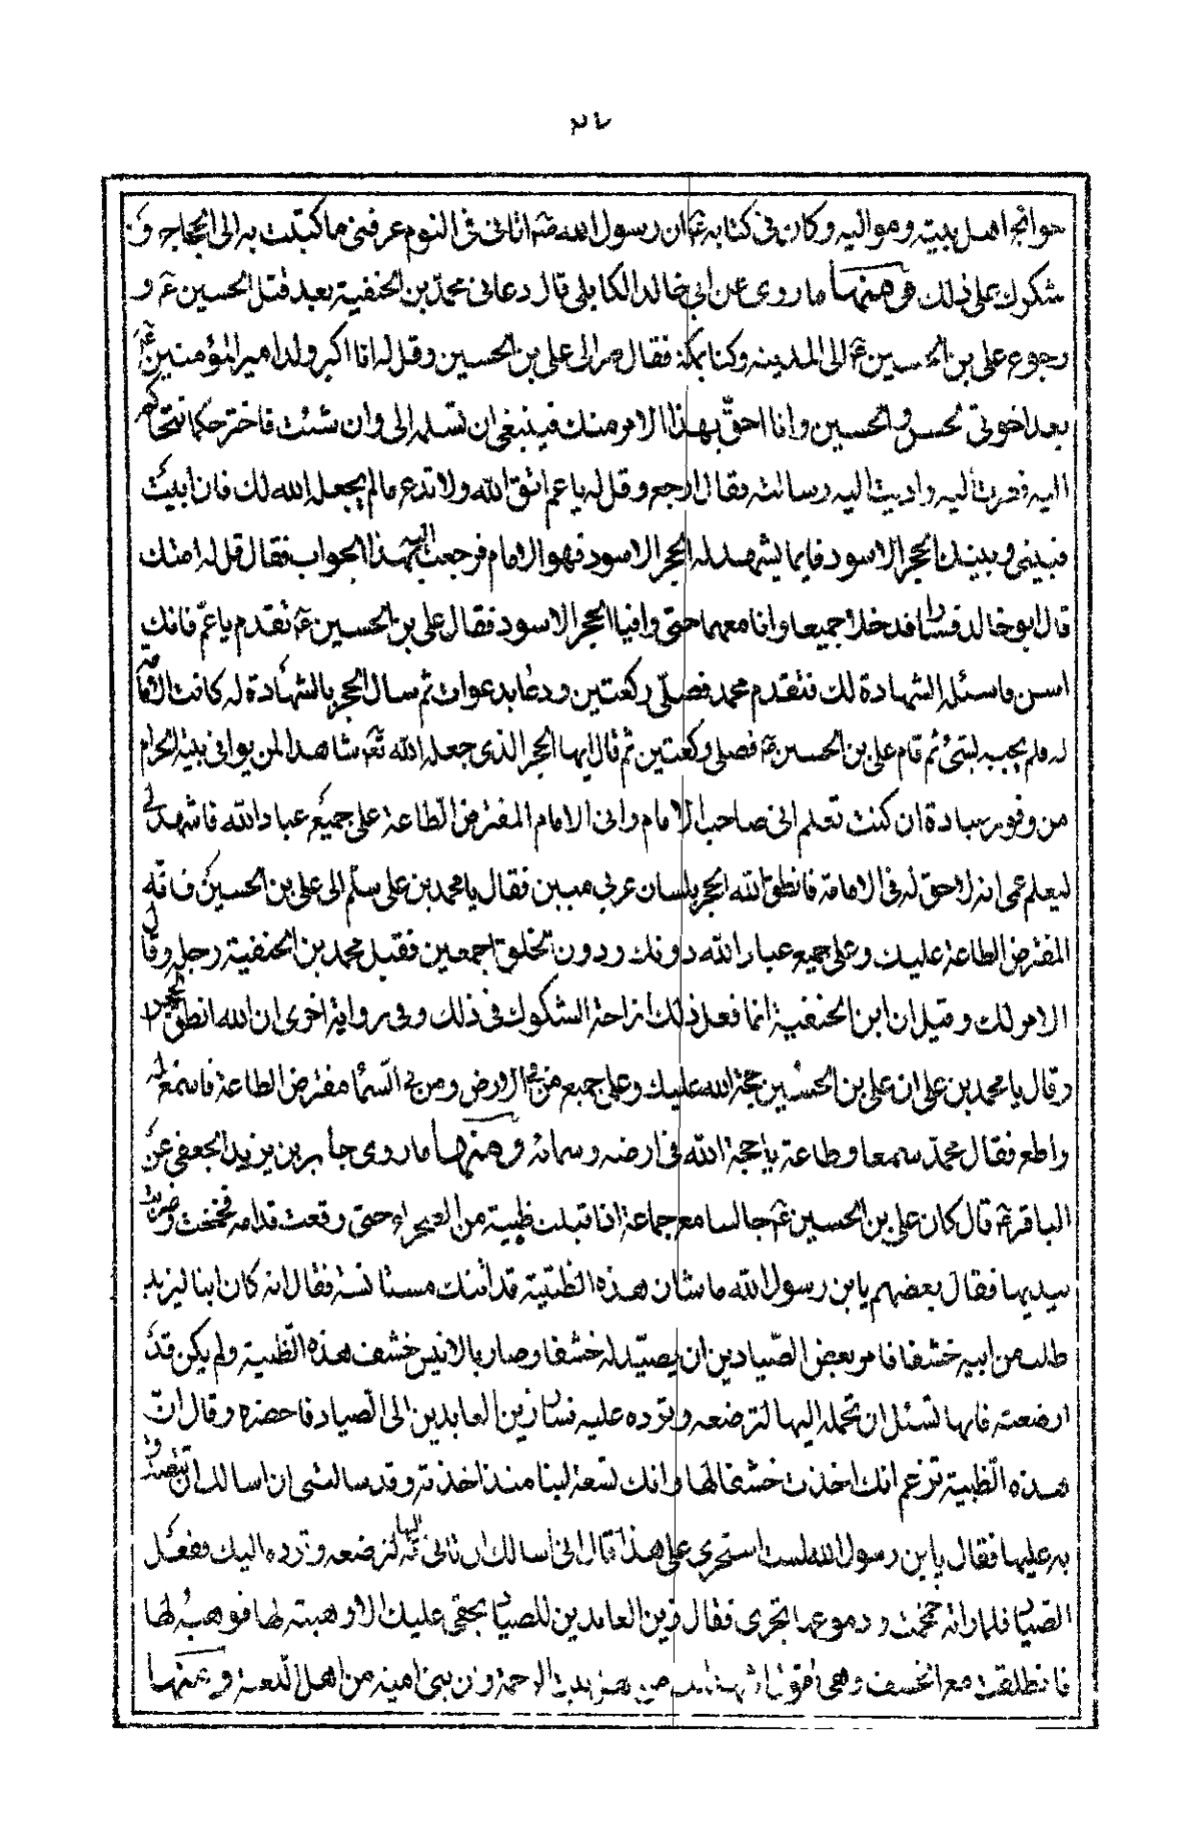 ٢٧
حوائج اهل بيته ومواليه وكان فى كتابه ع ان رسول الله ص اتانى فى النوم عرفنى ما كتبت به الى الحجاج و
شكرك على ذلك ومنها ما روى عن ابى خالد الكابلى قال دعانى محمد بن الحنفية بعد قتل الحسين ع و
رجوع على بن الحسين ع الى المدينه وكنا بمكة فقال صر الى على بن الحسين وقل له انا اكبر ولد امير المؤمنين ع
بعد اخوتى الحسن والحسين وانا احق بهذا الامر منك فينبغى ان تسلمه الى وان شئت فاختر حكما نتحاكم
اليه فصرت اليه واديت اليه رسالته فقال ارجع وقل له يا عم اتق الله ولا تدع ما لم يجعل الله لك فان ابيت
فبينى وبينك الحجر الاسود فايما يشهد له الحجر الاسود فهو الامام فرجعت اليه بهذا الجواب فقال قل له اجبتك
قال ابو خالد فسارا فدخلا جميعا وانا معهما حتى وافيا الحجر الاسود فقال على بن الحسين ع تقدم يا عم فانك
اسن فاسئله الشهادة لك فتقدم محمد فصلى ركعتين ودعا بدعوات ثم سال الحجر بالشهادة له كانت الامامة
له فلم يجبه بشئ ثم قام على بن الحسين ع فصلى ركعتين ثم قال ايها الحجر الذى جعله الله تعم شاهدا لمن يوافى بيته الحرام
من وفود عباده ان كنت تعلم انى صاحب الامام وانى الامام المفترض الطاعة على جميع عباد الله فاشهد لى
ليعلم عمى انه لا حق له فى الامامة فانطق الله الحجر بلسان عربى مبين فقال يا محمد بن على سلم الى على بن الحسين فانه
المفترض الطاعة عليك وعلى جميع عباد الله دونك ودون الخلق اجمعين فقبل محمد بن الحنفية رجله وقال
الامر لك وقيل ان ابن الحنفية انما فعل ذلك ازاحة الشكوك فى ذلك وفى رواية اخرى ان الله انطق الحجر
وقال يا محمد بن على ان على بن الحسين حجة الله عليك وعلى جميع من فى الارض ومن فى السماء مفترض الطاعة فاسمع له
واطع فقال محمد سمعا وطاعة يا حجة الله فى ارضه وسمائه ومنها ما روى جابر بن يزيد الجعفى عن
الباقر ع قال كان على بن الحسين ع جالسا مع جماعة اذ اقبلت ظبية من الصحراء حتى وقعت قدامه فحمحمت وضربت
بيديها فقال بعضهم يابن رسول الله ما شان هذه الظبية قد اتتك مستانسة فقال انه كان ابنا ليزيد
طلب من ابيه خشفا فامر بعض الصيادين ان يصيد له خشفا وصار بالامس خشف هذه الظبية ولم يكن قد
ارضعته فانها تسئل ان تحمله اليها لترضعه وترده عليه فسار زين العابدين الى الصياد فاحضره وقال ان
هذه الظبية تزعم انك اخذت خشفا لها وانك لم تسقه لبنا منذ اخذته وقد سالتنى ان اسالك ان تتصدق
به عليها فقال يابن رسول الله لست استجرى على هذا قال انى اسالك ان تاتى به اليها لترضعه وترده اليك ففعل
الصياد فلما راته حمحمت ودموعها تجرى فقال زين العابدين للصياد بحقى عليك الا وهبته لها فوهبه لها
فانطلقت مع الخشف وهى تقول اشهد انك من اهل بيت الرحمة وان بنى امية من اهل اللعنة ومنها